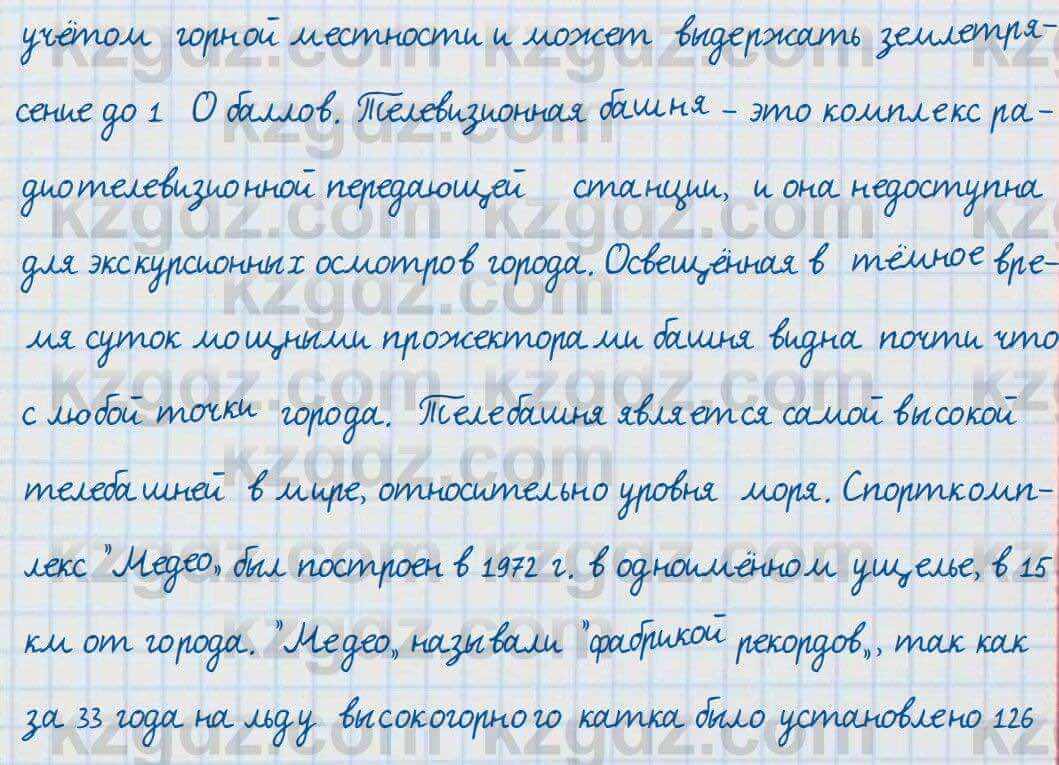 учётом горной местности и может выдержать землетря-
сение до 1 0 баллов. Телевизионная башня - это комплекс ра-
диотелевизионной передающей станции, и она недоступна
для экскурсионных осмотров города. Освещённая в тёмное вре-
мя суток мощными прожекторами башня видна почти что
с любой точки города. Телебашня является самой высокой
телебашней в мире, относительно уровня моря. Спорткомп-
лекс "Медео„ был построен в 1972 г. в одноимённом ущелье, в 15
км от города. "Медео„ называли "фабрикой рекордов„, так как
за 33 года на льду высокогорного катка было установлено 126
kzgdz.com